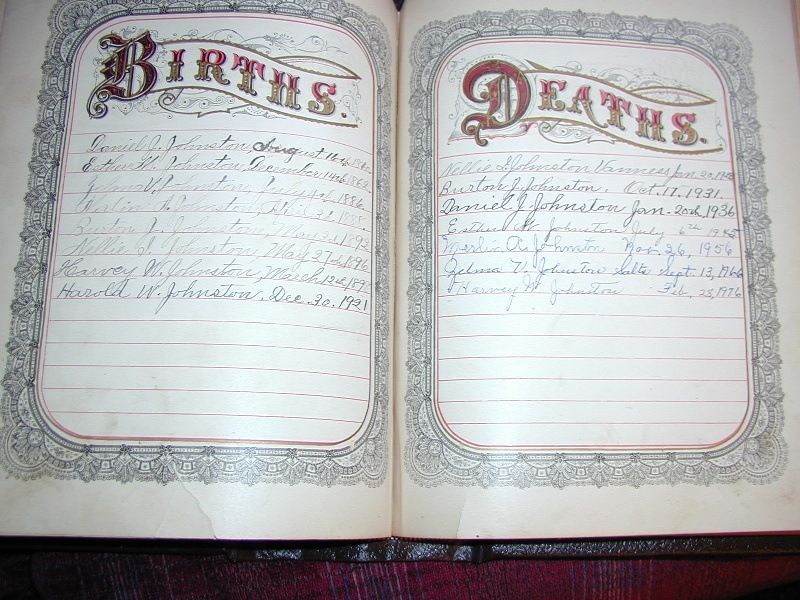 BIRTHS.
Daniel J. Johnston, August 16th
Esther W. Johnston, December 14th 1862
Zelma V. Johnston, July 1886
Merlin A. Johnston, April 3d. 1888.
Burton J. Johnston, May 1892
Nellie I. Johnston, May 27th 1896
Harvey W. Johnston, March 12th
Harold W. Johnston. Dec. 30. 1921
DEATHS.
Nellie I. Johnston Vanness Jan. 20,
Burton J. Johnston. Oct. 17. 1931.
Daniel J. Johnston Jan. 20th, 1936
Esther W. Johnston July 6th 1945
Merlin A. Johnston Nov. 26, 1956
Zelma V. Johnston Salts Sept. 13, 1966
Harvey W. Johnston - Feb. 23, 1976